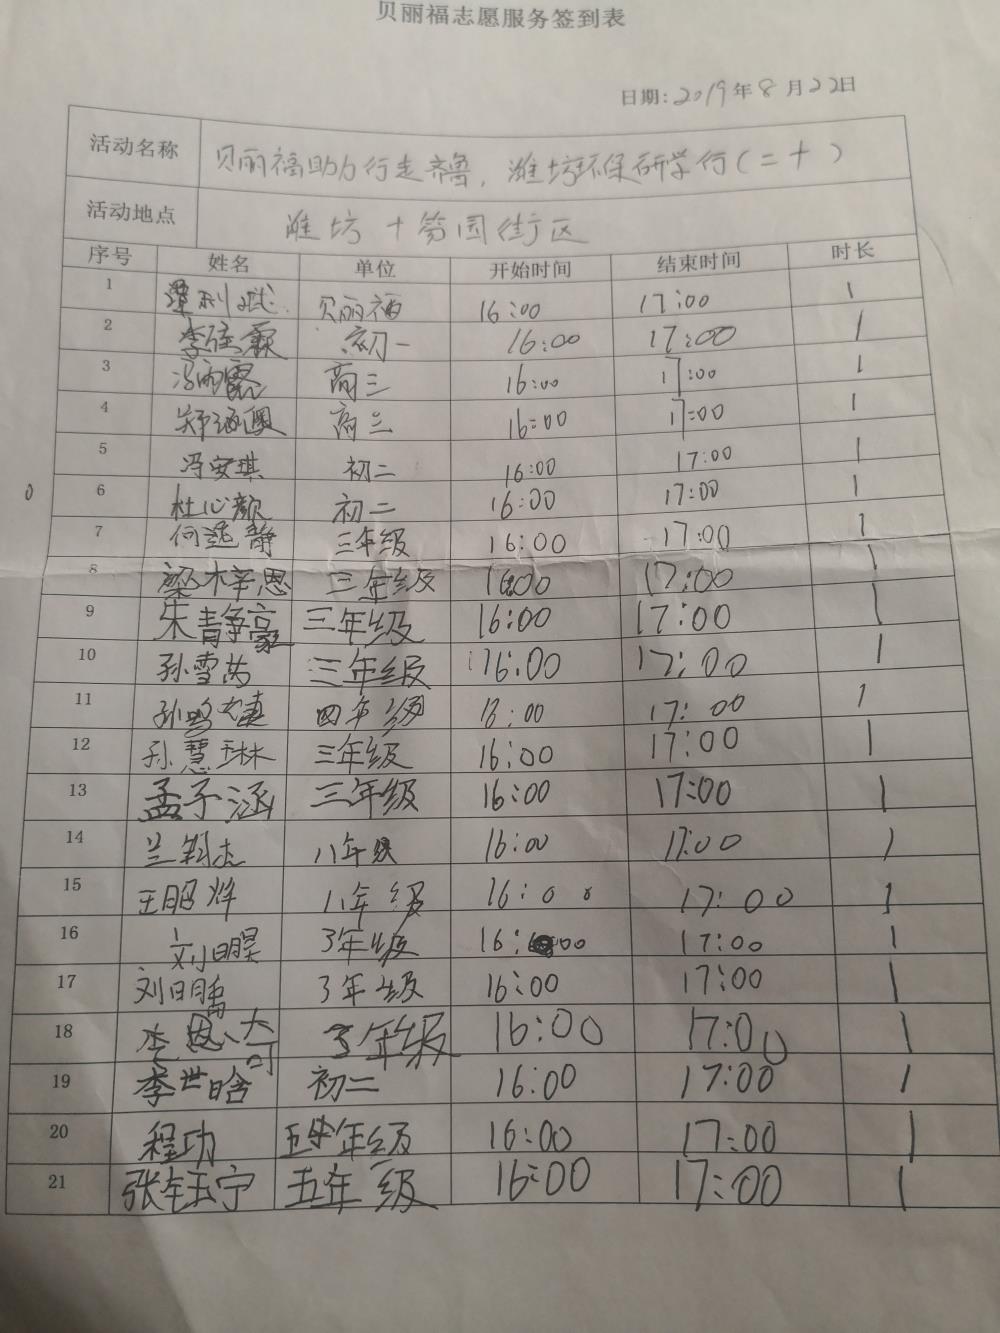 贝丽福志愿服务签到表
日期：2019年8月22日
活动名称 贝丽福助力行走齐鲁，潍坊环保研学行（二十）
活动地点 潍坊十笏园街区
序号 姓名 单位 开始时间 结束时间 时长
1 贝丽福 16:00 17:00 1
2 李 霖 初一 16:00 17:00 1
3 冯雨露 高三 16:00 17:00 1
4 郑涵 高三 16:00 17:00 1
5 冯安琪 初二 16:00 17:00 1
6 杜心颜 初二 16:00 17:00 1
7 何 静 三年级 16:00 17:00 1
8 梁梓恩 三年级 16:00 17:00 1
9 朱静豪 三年级 16:00 17:00 1
10 孙雪芮 三年级 16:00 17:00 1
11 孙鸣 四年级 18:00 17:00 1
12 孙慧琳 三年级 16:00 17:00 1
13 孟子涵 三年级 16:00 17:00 1
14 兰 志 八年级 16:00 17:00 1
15 王昭烨 八年级 16:00 17:00 1
0
16 刘明昊 3年级 16:00 17:00 1
17 刘 3年级 16:00 17:00 1
18 李恩 3年级 16:00 17:00 1
19 李世晗 初二 16:00 17:00 1
20 程功 五年级 16:00 17:00 1
21 张钰宁 五年级 16:00 17:00 1